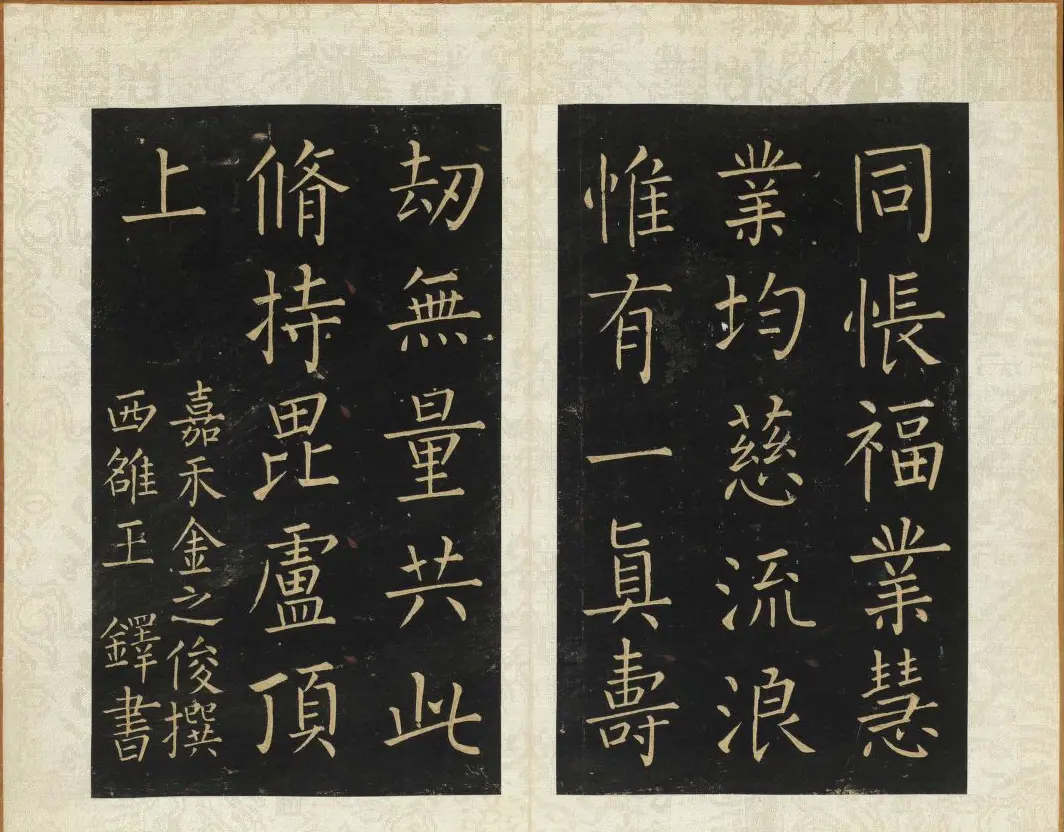 同悵福業慧
業均慈流浪
惟有一真壽
劫無量共此
脩持毘盧頂
上
嘉禾金之俊撰
西雒王鐸書